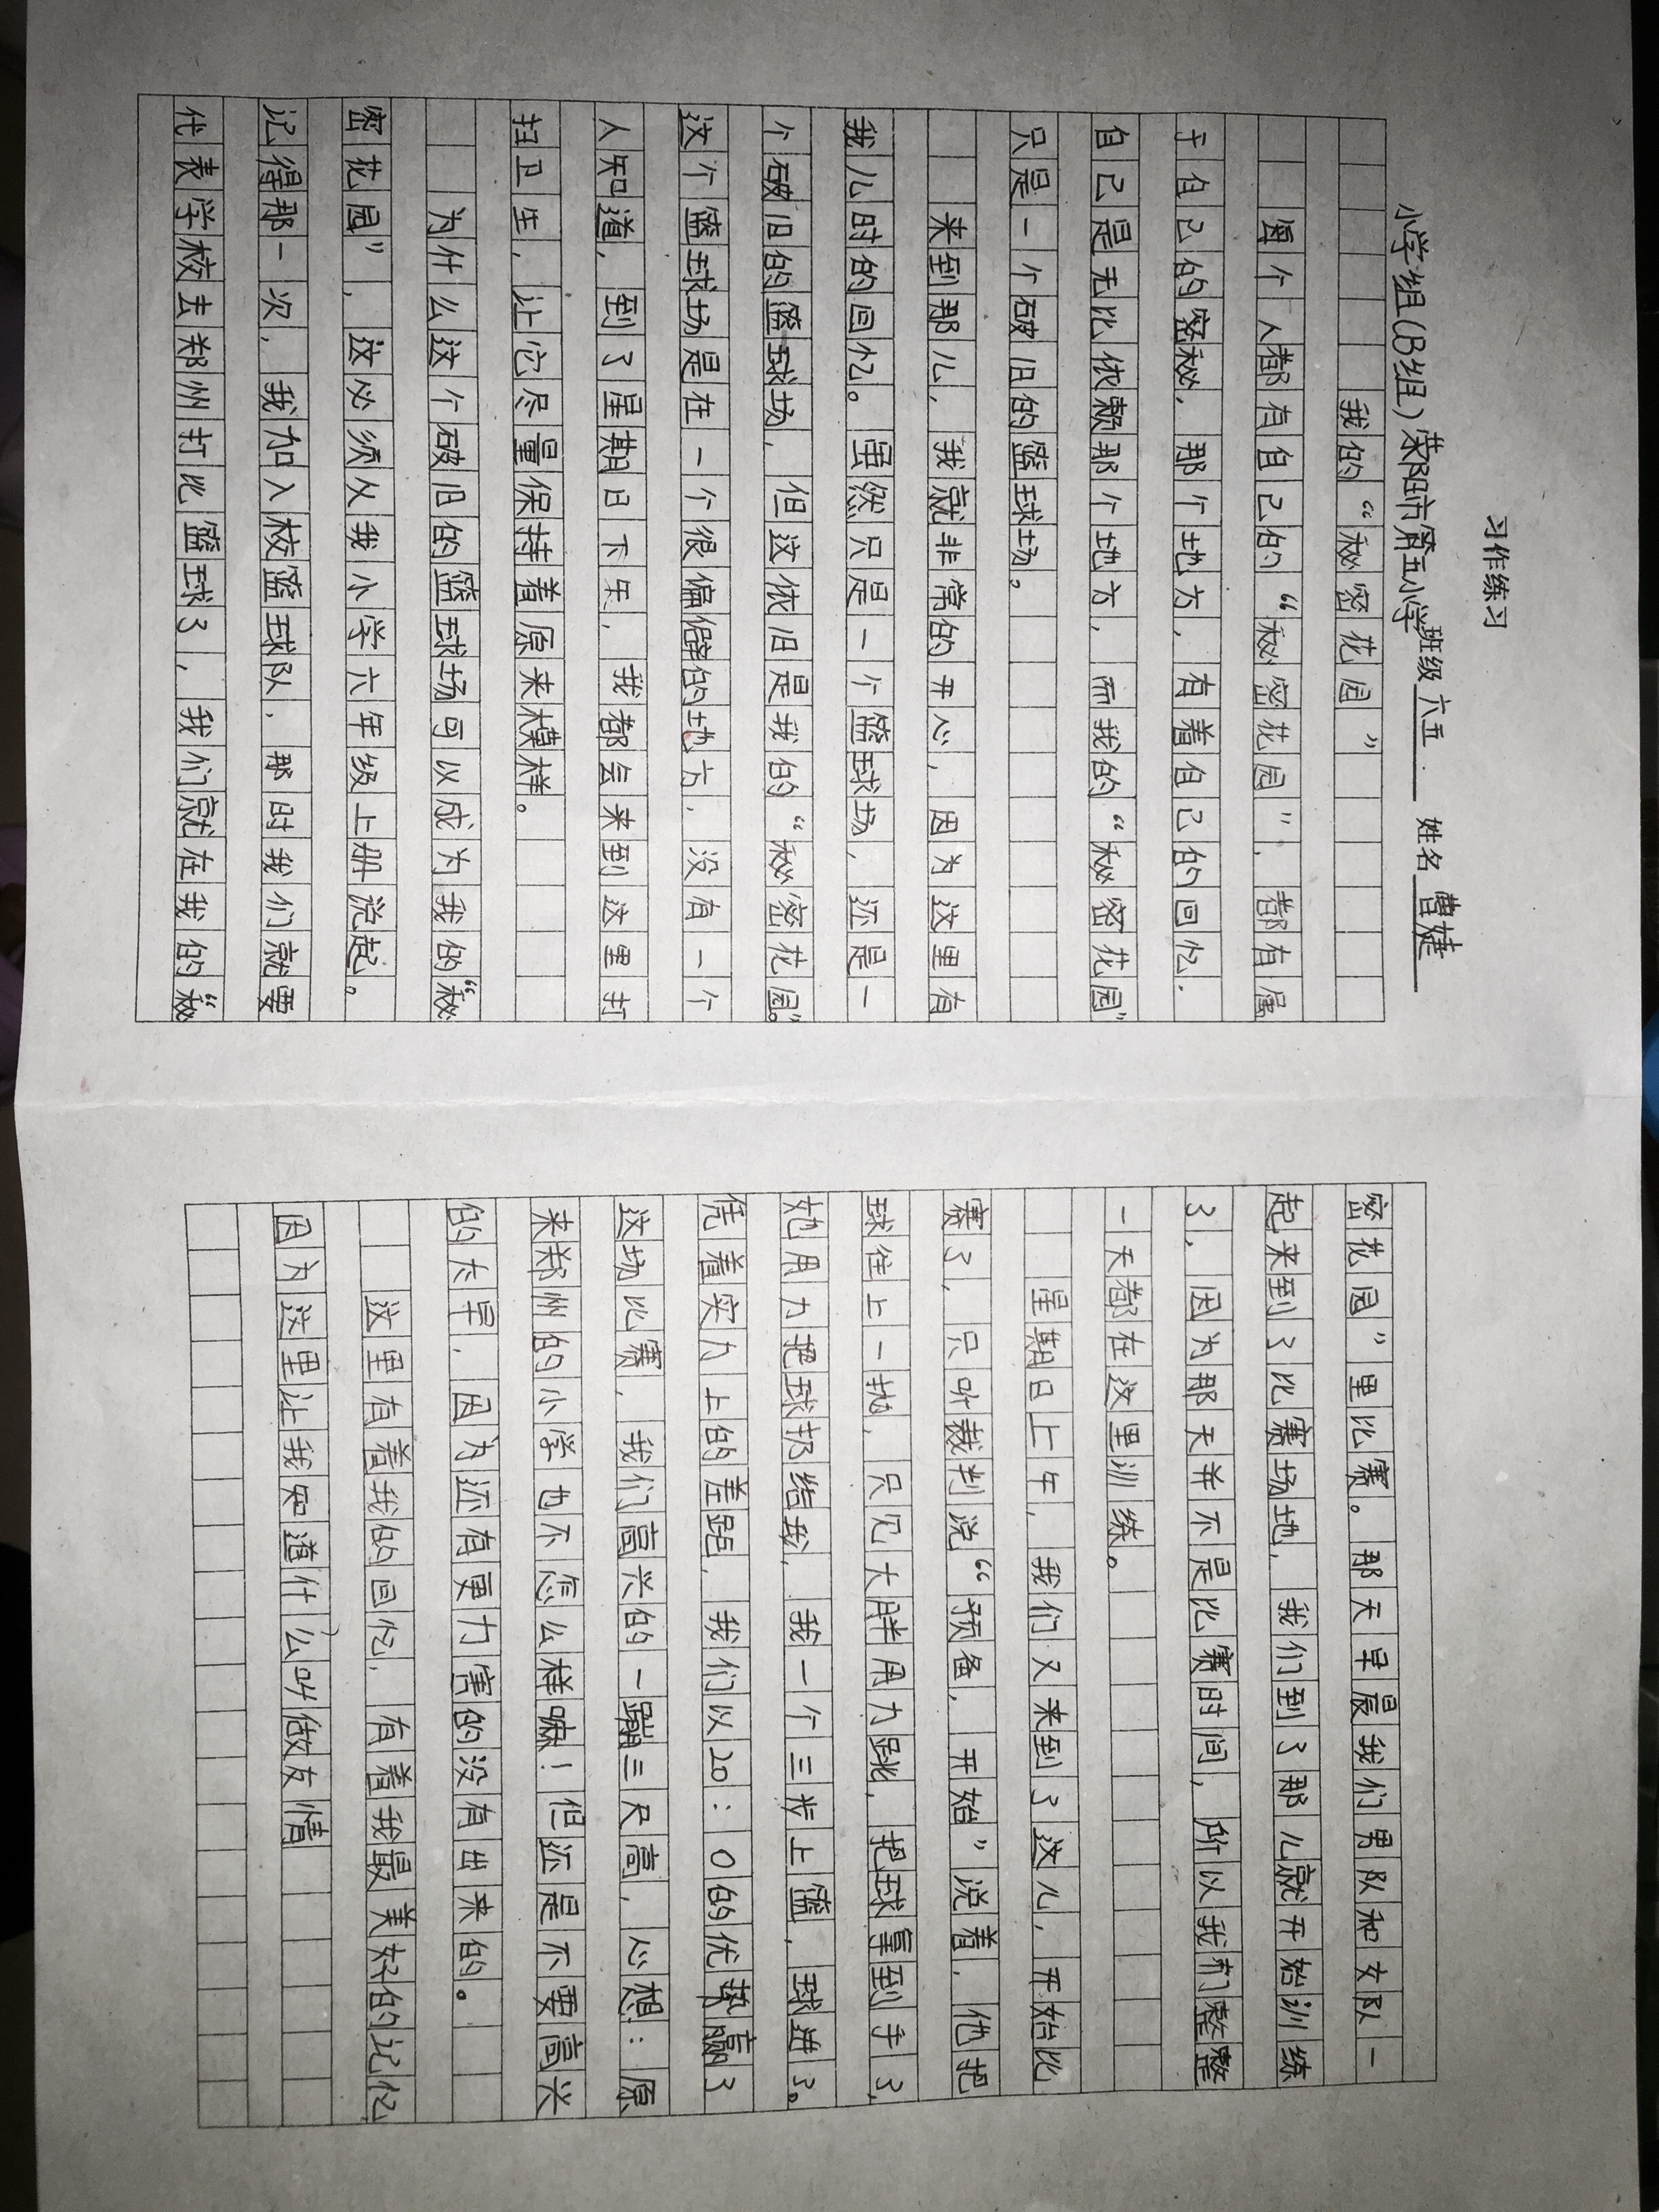 习作练习
小学组(B组)荥阳市第五小学班级六五. 姓名曹婕
我的“秘密花园”
每个人都有自己的“秘密花园”,都有属
于自己的密秘,那个地方,有着自己的回忆,
自己是无比依赖那个地方,而我的“秘密花园”
只是一个破旧的篮球场。
来到那儿,我就非常的开心,因为这里有
我儿时的回忆。虽然只是一个篮球场,还是一
个破旧的篮球场,但这依旧是我的“秘密花园。”
这个篮球场是在一个很偏僻的地方,没有一个
人知道,到了星期日下午,我都会来到这里打
扫卫生,让它尽量保持着原来模样。
为什么这个破旧的篮球场可以成为我的“秘
密花园”,这必须从我小学六年级上册说起。
记得那一次,我加入校篮球队,那时我们就要
代表学校去郑州打比篮球了,我们就在我的“秘
密花园”里比赛。那天早晨我们男队和女队一
起来到了比赛场地,我们到了那儿就开始训练
了,因为那天并不是比赛时间,所以我们整整
一天都在这里训练。
星期日上午,我们又来到了这儿,开始比
赛了,只听裁判说“预备,开始”说着,他把
球往上一抛,只见大胖用力跳,把球拿到手了,
她用力把球扔给我,我一个三步上篮,球进了。
凭着实力上的差距,我们以20:0的优势赢了
这场比赛,我们高兴的一蹦三尺高,心想:原
来郑州的小学也不怎么样嘛!但还是不要高兴
的太早,因为还有更力害的没有出来的。
这里有着我的回忆,有着我最美好的记忆
因为这里让我知道什么叫做友情